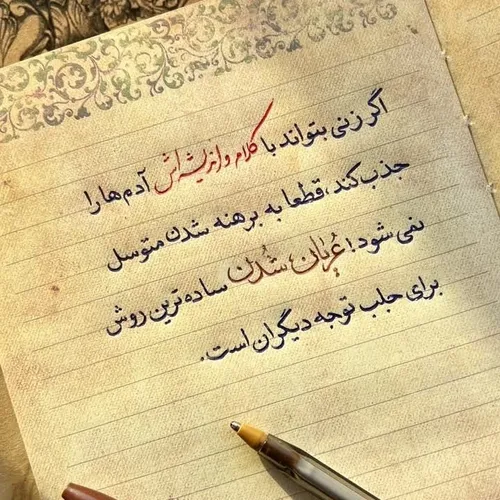 اگر زنی بتواند با کلام و اندیشه‌اش آدم‌ها را
جذب کند، قطعا به برهنه شدن متوسل
نمی‌شود! عُریان شُدن ساده‌ترین روش
برای جلب توجه دیگران است.